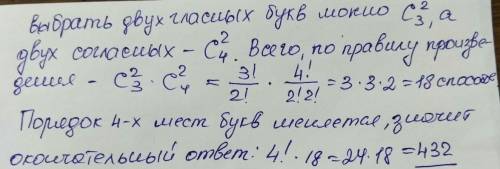 выбрать двух гласных букв можно C₃², а
двух согласных – C₄². Всего, по правилу произве-
дения – C₃² · C₄² = 3!/2! · 4!/2!2! = 3·3·2 = 18 способов
Порядок 4-х мест букв меняется, значит
окончательный ответ: 4! · 18 = 24·18 = 432